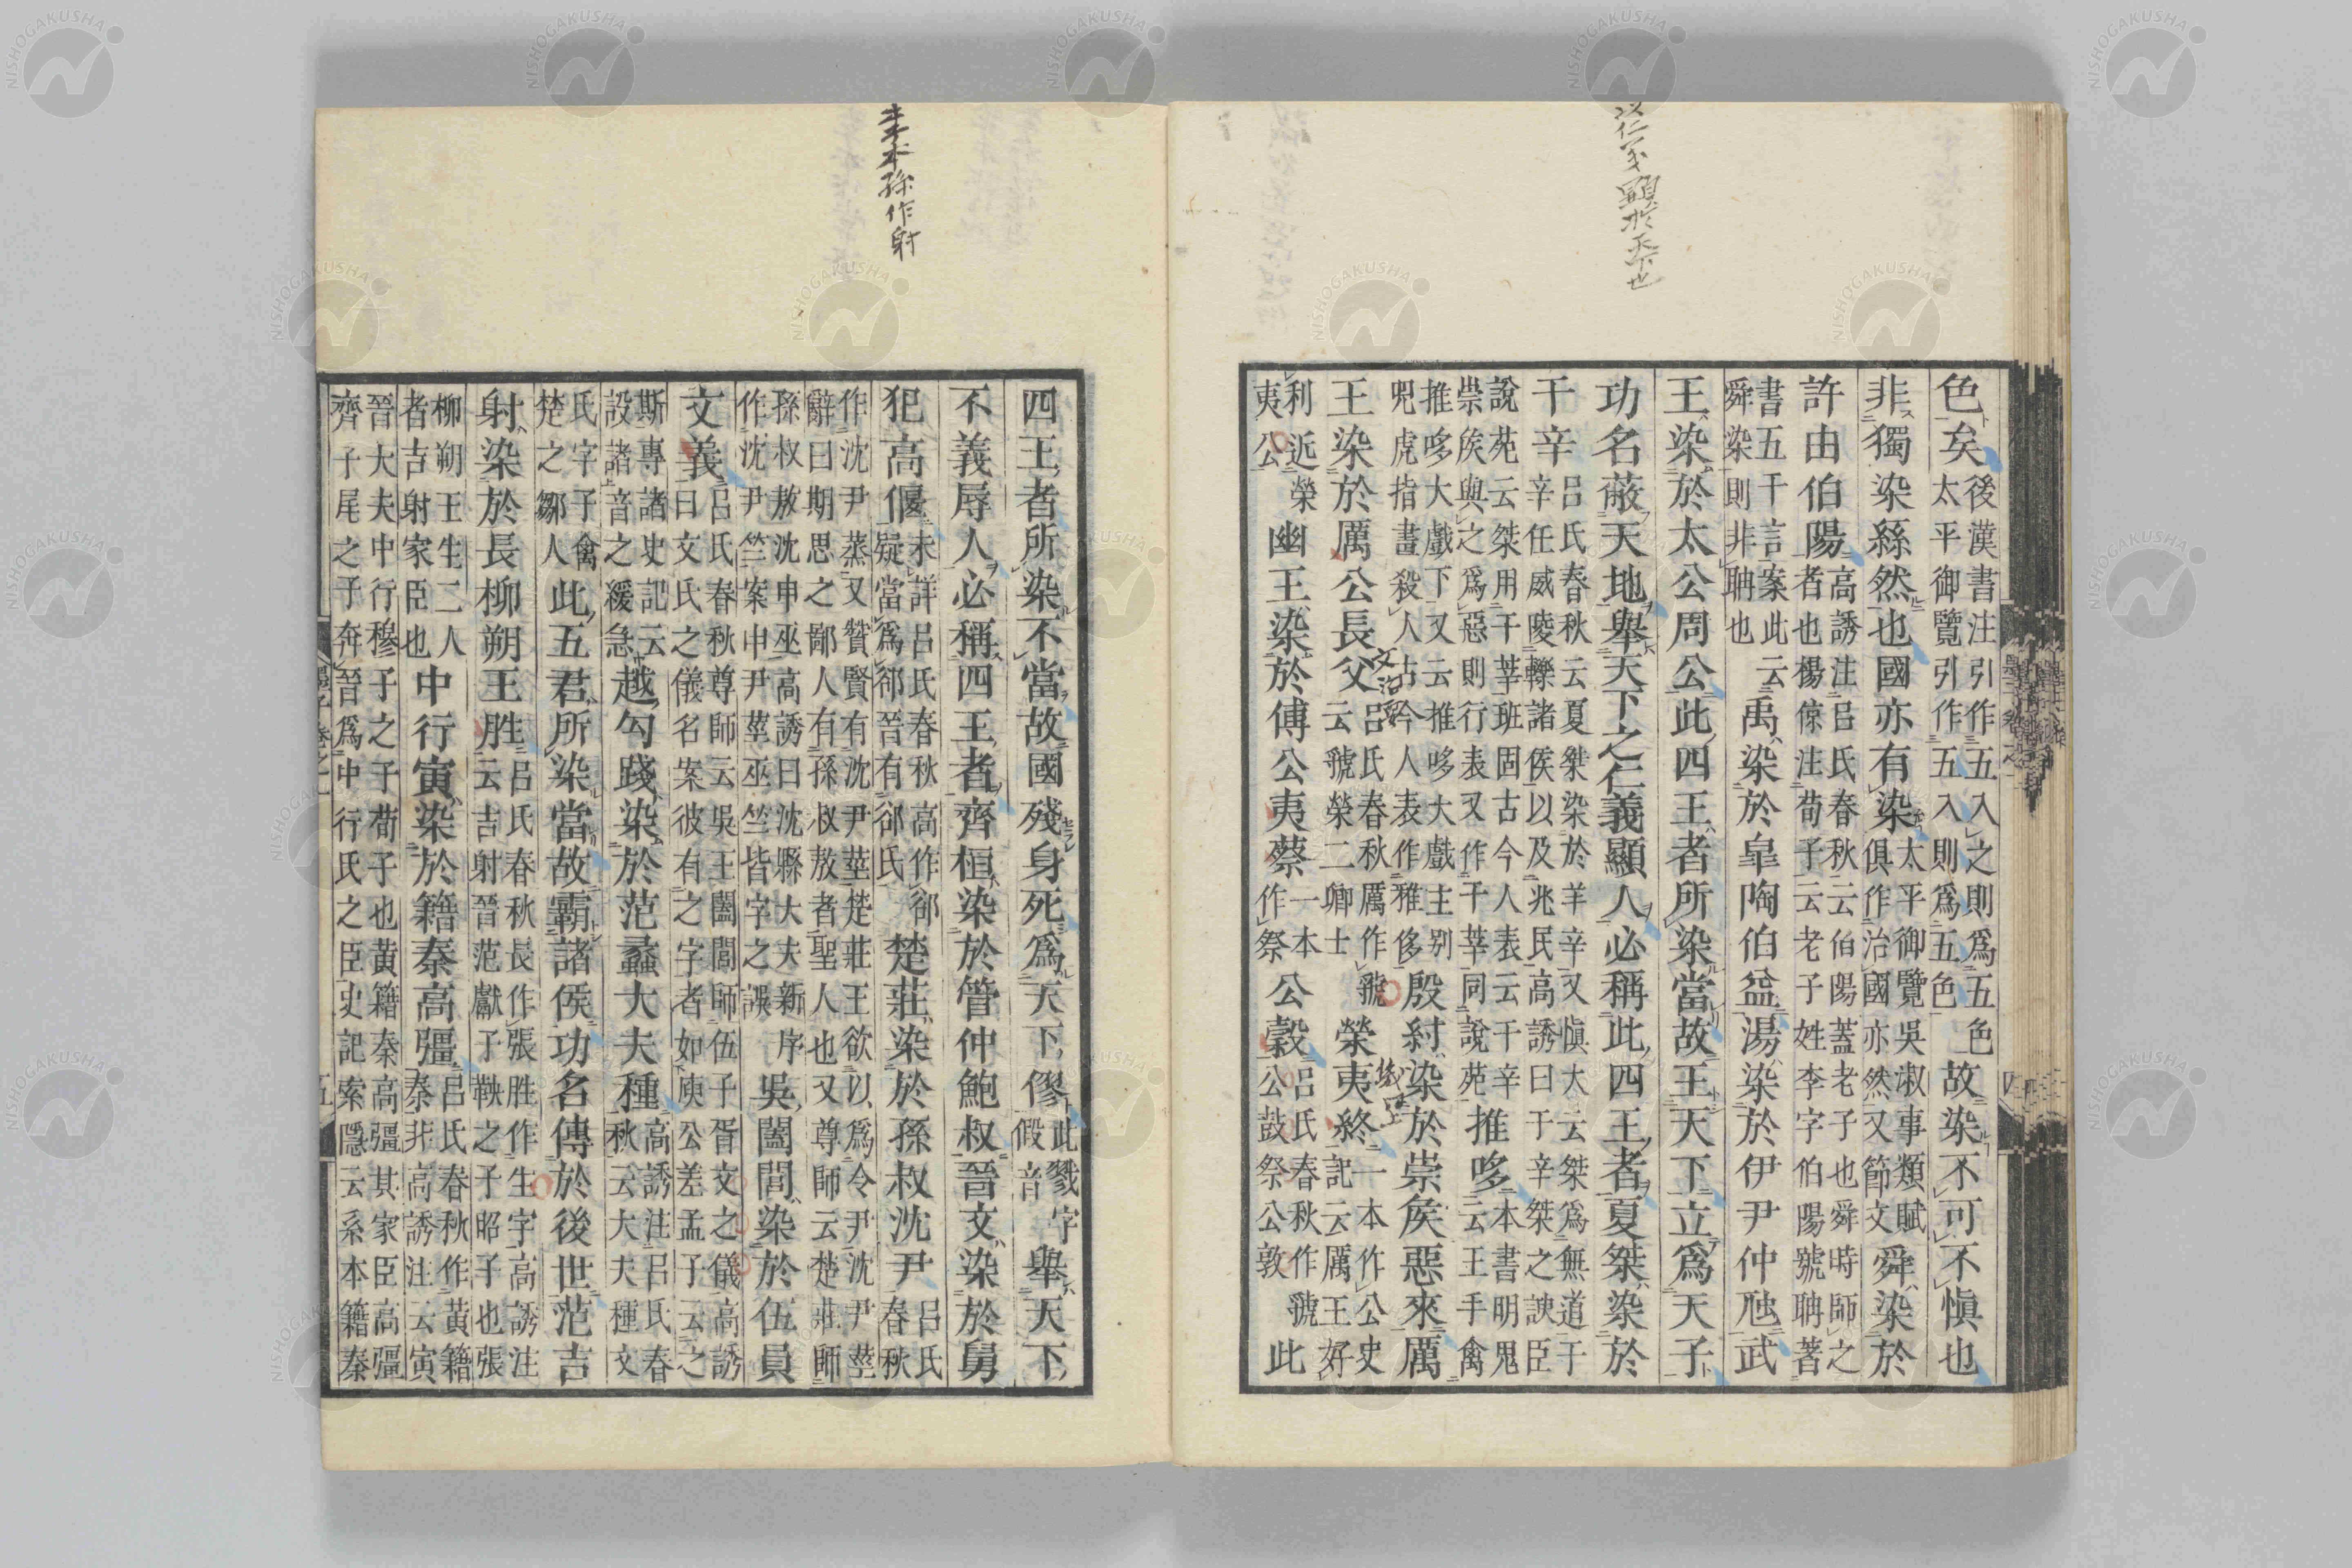 色矣後漢書注引作五入之則爲五色太平御覽引作五入則爲五色故染不可不愼也
非獨染絲然也國亦有染太平御覽吳淑事類賦俱作治國亦然又節文舜染於
許由伯陽高誘注呂氏春秋云伯陽蓋老子也舜時師之者也楊倞注荀子云老子姓李字伯陽號聃著
書五千言案此云舜染則非聃也禹染於皐陶伯益湯染於伊尹仲虺武
王染於太公周公此四王者所染當故王天下立爲天子
功名蔽天地舉天下之仁義顯人必稱此四王者夏桀染於
干辛呂氏春秋云夏桀染於羊辛又愼大云桀爲無道于辛任威陵轢諸侯以及兆民高誘曰于辛桀之諛臣
說苑云桀用干莘班固古今人表云干辛崇侯與之爲惡則行表又作干莘同說苑推哆本書明鬼云王手禽
推哆大戲下又云推哆大戲主别兕虎指畫殺人古今人表作雅侈殷紂染於崇侯惡來厲
王染於厲公長父呂氏春秋厲作虢云虢榮二卿士榮夷終一本作公史記云厲王好
利近榮夷公幽王染於傅公夷蔡一本作祭公穀呂氏春秋作虢公鼓祭公敦此
四王者所染不當故國殘身死爲天下僇此戮字假音舉天下
不義辱人必稱四王者齊桓染於管仲鮑叔晉文染於舅
犯高偃未詳呂氏春秋高作郤疑當爲郤晉有郤氏楚莊染於孫叔沈尹呂氏春秋
作沈尹蒸又贊賢有沈尹莖楚莊王欲以爲令尹沈尹莖辭曰期思之鄙人有孫叔敖者聖人也又尊師云楚莊師
孫叔敖沈申巫高誘曰沈縣大夫新序作沈尹竺案申尹莖巫竺皆字之誤吳闔閭染於伍員
文義呂氏春秋尊師云吳王闔閭師伍子胥文之儀高誘曰文氏之儀名案彼有之字者如庾公差孟子云之
斯專諸史記云設諸音之緩急越勾踐染於范蠡大夫種高誘注呂氏春秋云大夫種文
氏字子禽楚之鄒人此五君所染當故霸諸侯功名傳於後世范吉
射染於長柳朔王胜呂氏春秋長作張胜作生字高誘注云吉射晉范獻子鞅之子昭子也張
柳朔王生二人者吉射家臣也中行寅染於籍秦高彊呂氏春秋作黃籍秦非高誘注云寅
晉大夫中行穆子之子荀子也黃籍秦高彊其家臣高彊齊子尾之子奔晉爲中行氏之臣史記索隱云系本籍秦
墨子卷之一
五
以仁義顯於天下也
孫作射
NISHOGAKUSHA